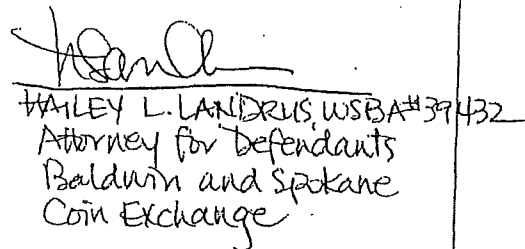 HAILEY L. LANDRUS, WSBA#39432
Attorney for Defendants
Baldwin and Spokane
Coin Exchange